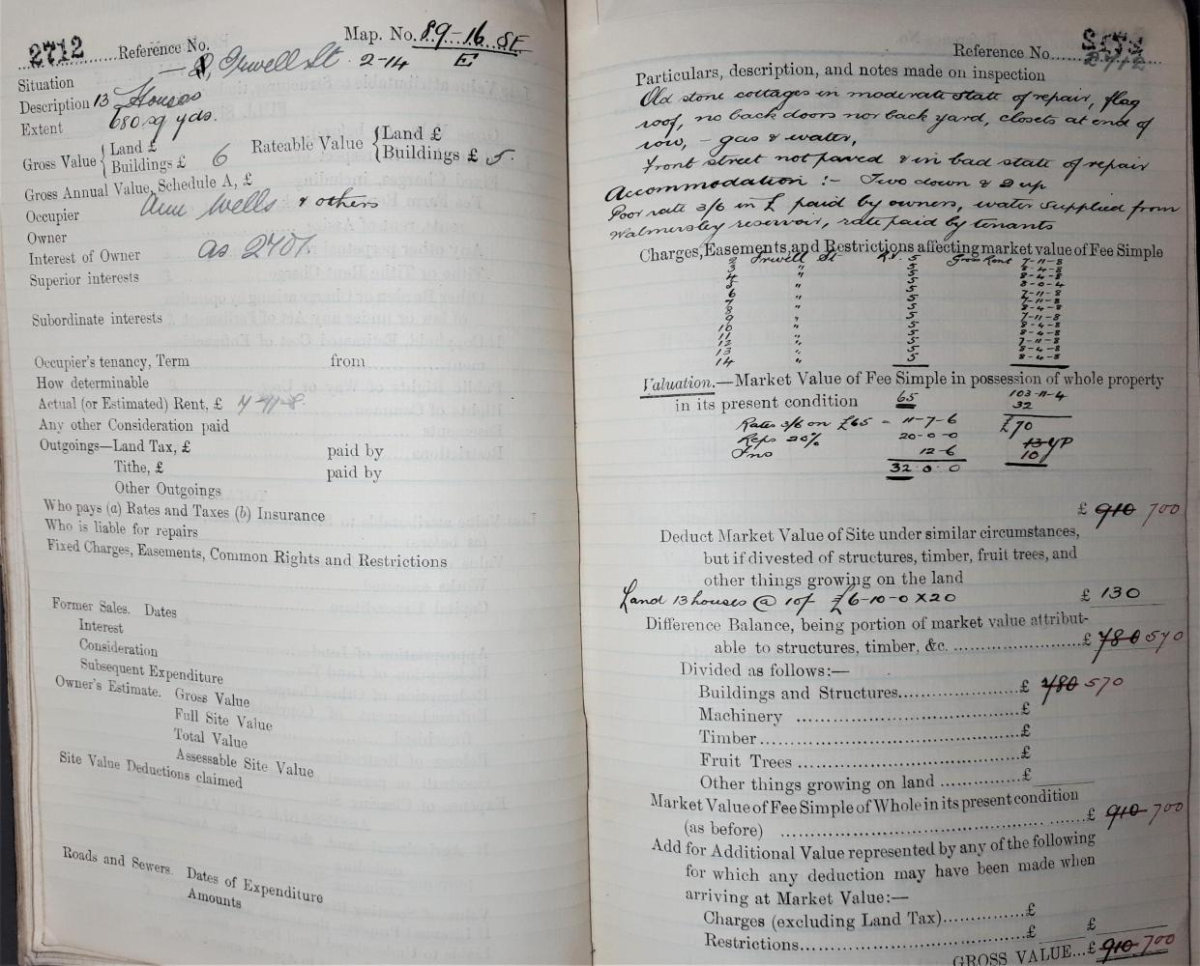 2712 Reference No. Map. No. 89-16 SE
E
Situation Irwell St 2-14
Description 13 Houses
Extent 680 sq yds.
Gross Value { Land £
Buildings £ 6 Rateable Value { Land £
Buildings £ 5.
Gross Annual Value, Schedule A, £
Occupier Ann Wells & others
Owner
Interest of Owner as 2707.
Superior interests
Subordinate interests
Occupier's tenancy, Term from
How determinable
Actual (or Estimated) Rent, £ 7-11-8.
Any other Consideration paid
Outgoings—Land Tax, £ paid by
Tithe, £ paid by
Other Outgoings
Who pays (a) Rates and Taxes (b) Insurance
Who is liable for repairs
Fixed Charges, Easements, Common Rights and Restrictions
Former Sales. Dates
Interest
Consideration
Subsequent Expenditure
Owner's Estimate. Gross Value
Full Site Value
Total Value
Assessable Site Value
Site Value Deductions claimed
Roads and Sewers. Dates of Expenditure
Amounts
Reference No. 2712
Particulars, description, and notes made on inspection
Old stone cottages in moderate state of repair, flag
roof, no back doors nor back yard, closets at end of
row, - gas & water,
Front street not paved & in bad state of repair
Accommodation :- Two down & 2 up
Poor rate 3/6 in £ paid by owners, water supplied from
Walmersley reservoir, rate paid by tenants
Charges, Easements, and Restrictions affecting market value of Fee Simple
2 Irwell St R.V. 5 Gross Rent 7-11-8
3 " 5 8-4-8
4 " 5 8-4-8
5 " 5 8-0-4
6 " 5 7-11-8
7 " 5 7-11-8
8 " 5 8-4-8
9 " 5 7-11-8
10 " 5 8-4-8
11 " 5 8-4-8
12 " 5 7-11-8
13 " 5 8-4-8
14 " 5 8-4-8
Valuation.—Market Value of Fee Simple in possession of whole property
in its present condition 65 103-11-4
32
Rates 3/6 on £65 - 11-7-6 £70
Reps 20% 20-0-0 13 YP
Ins 12-6 10
32.0.0
£ 910 700
Deduct Market Value of Site under similar circumstances,
but if divested of structures, timber, fruit trees, and
other things growing on the land
Land 13 houses @ 10/- £6-10-0 X 20 £ 130
Difference Balance, being portion of market value attribut-
able to structures, timber, &c. £ 780 570
Divided as follows:—
Buildings and Structures £ 780 570
Machinery £
Timber £
Fruit Trees £
Other things growing on land £
Market Value of Fee Simple of Whole in its present condition
(as before) £ 910 700
Add for Additional Value represented by any of the following
for which any deduction may have been made when
arriving at Market Value:—
Charges (excluding Land Tax) £
Restrictions £ £
GROSS VALUE...£ 910 700